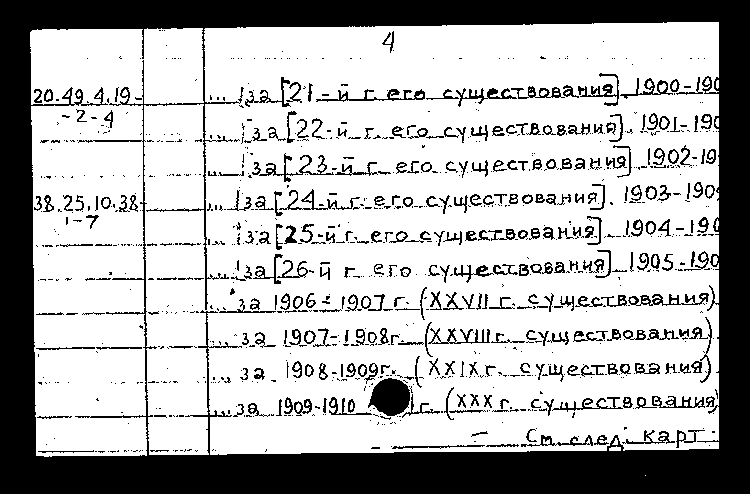 4
20.49.4.19- ... |за [21-й г. его существования]. 1900-190
-2-4
... |за [22-й г. его существования]. 1901-190
... |за [23-й г. его существования] 1902-19
38.25.10.38- ... |за [24-й г. его существования]. 1903-190
1-7
... |за [25-й г. его существования]. 1904-190
... |за [26-й г. его существования] 1905-190
... за 1906-1907 г. (XXVII г. существования)
... за 1907-1908г. (XXVIII г. существования)
... за 1908-1909г. (XXIX г. существования)
... за 1909-1910 г. (XXX г. существования)
- См. след. карт.